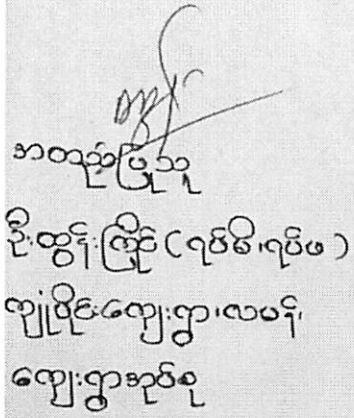 အတည်ပြုသူ
ဦးထွန်းကြိုင် (ရပ်မိ၊ရပ်ဖ)
ကျုံပိုင်းကျေးရွာ၊လမန်း
ကျေးရွာအုပ်စု